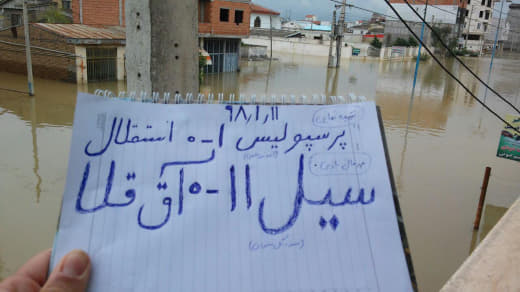 ۹۸/۱/۱۱
پرسپولیس ۱-۰ استقلال
سیل ۱۱-۰ آق قلا